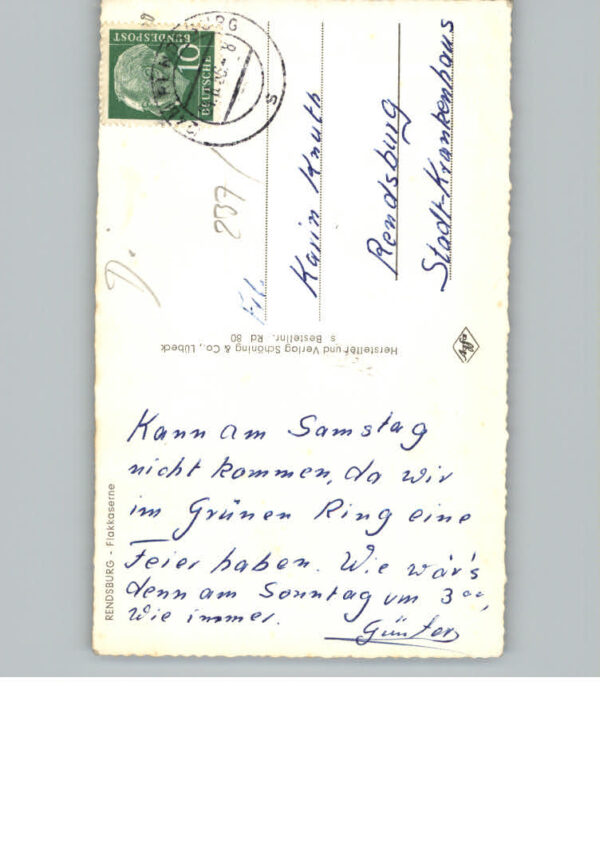 Kann am Samstag
nicht kommen, da wir
im Grünen Ring eine
Feier haben. Wie wär's
denn am Sonntag um 3⁰⁰,
wie immer.
Günter
Frl.
Karin Knuth
Rendsburg
Stadt-Krankenhaus
237/
D.
DEUTSCHE
BUNDESPOST
10
RENDSBURG - Flakkaserne
Hersteller und Verlag Schöning & Co., Lübeck
s Bestellnr. Rd 80
Agfa